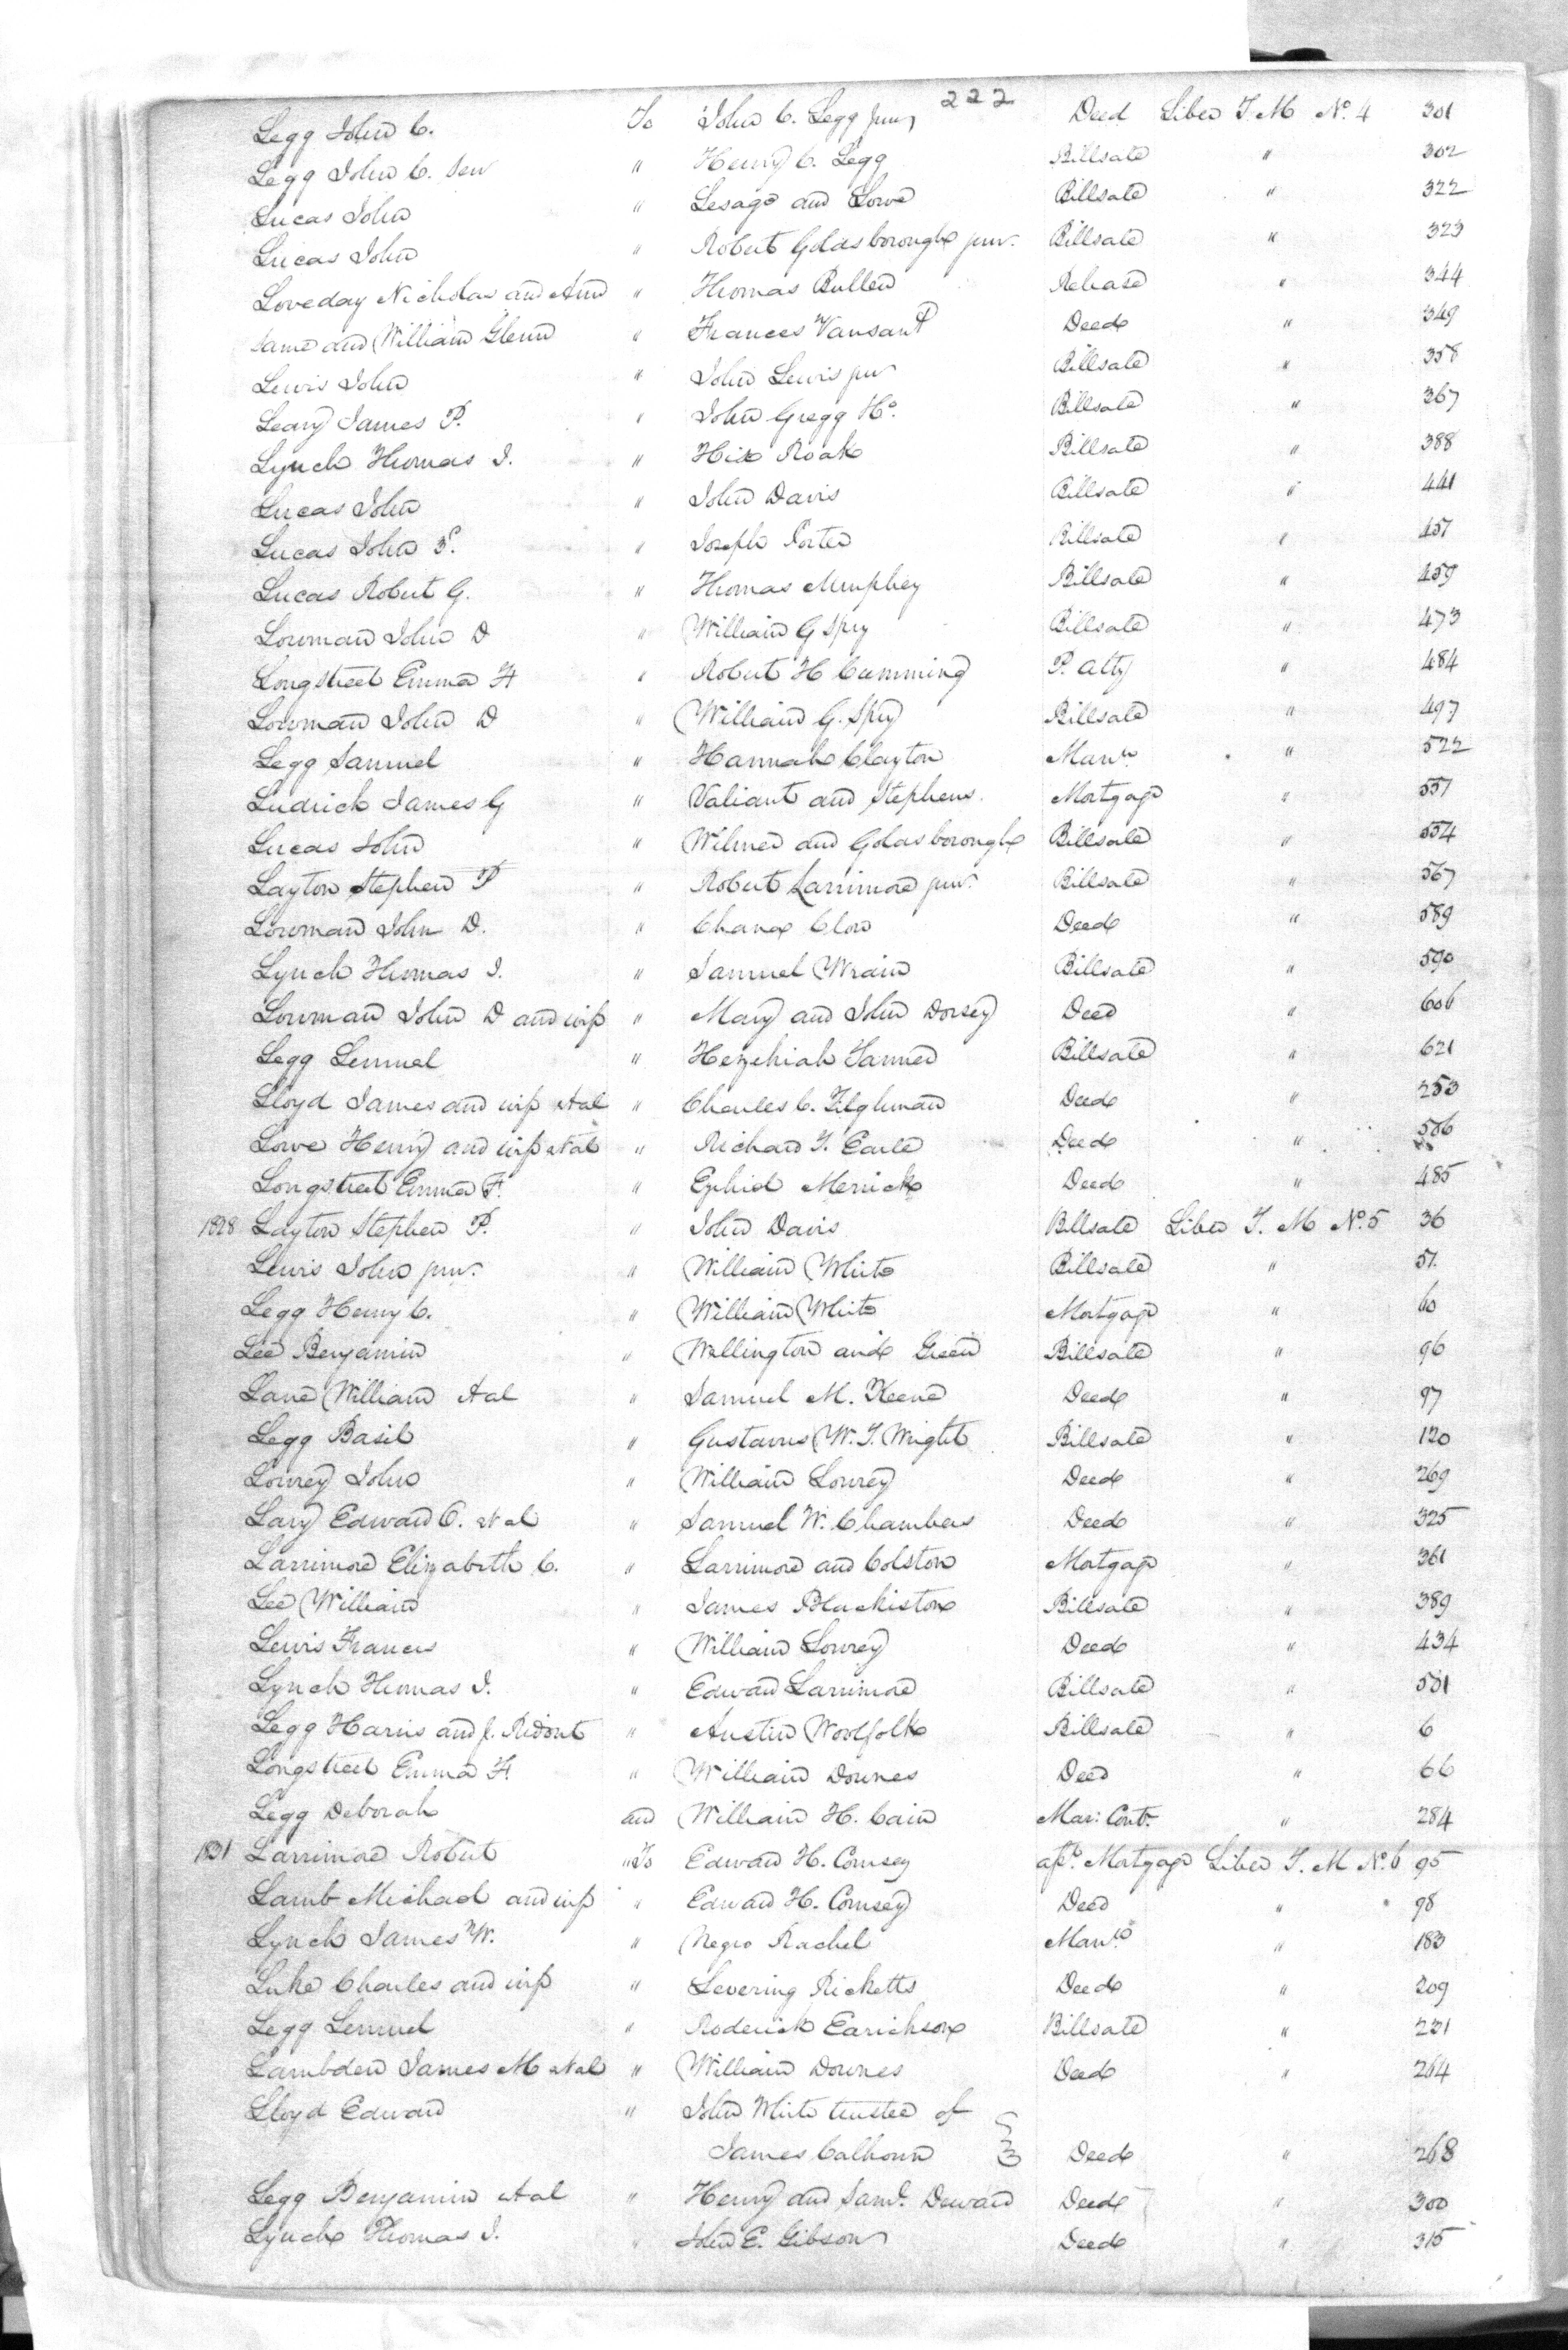 222
Legg John C. To John C. Legg junr Deed Liber T. M No. 4 301
Legg John C. Senr " Henry C. Legg Billsale " 302
Lucas John " Lesage and Lowe Billsale " 322
Lucas John " Robert Goldsborough junr. Billsale " 323
Loveday Nicholas and Ann " Thomas Bullen Release " 344
Same and William Glenn " Frances Vansant Deed " 349
Lewis John " John Lewis junr Billsale " 358
Leary James P. " John Gregg Billsale " 367
Lynch Thomas J. " Hix Roak Billsale " 388
Lucas John " John Davis Billsale " 441
Lucas John " Joseph Porter Billsale " 457
Lucas Robert G. " Thomas Murphey Billsale " 459
Lowman John D " William G Spry Billsale " 473
Longstreet Emma H " Robert H Cumming P. Atty " 484
Lowman John D " William G. Spry Billsale " 497
Legg Samuel " Hannah Clayton Mann " 522
Ludrick James G " Valiant and Stephens. Mortgage " 551
Lucas John " Wilmer and Goldsborough Billsale " 554
Layton Stephen P " Robert Larrimore junr. Billsale " 567
Lowman John D. " Chance Clow Deed " 589
Lynch Thomas J. " Samuel Wrain Billsale " 590
Lowman John D and wife " Mary and John Dorsey Deed " 606
Legg Lemuel " Hezekiah Tanner Billsale " 621
Lloyd James and wife et al " Charles C. Tilghman Deed " 253
Lowe Henry and wife et al " Richard T. Earle Deed " 586
Longstreet Emma F. " Merrick Deed " 485
1828 Layton Stephen P. " John Davis Billsale Liber T. M No. 5 36
Lewis John junr. " William White Billsale " 51
Legg Henry C. " William White Mortgage " 60
Lee Benjamin " Wallington and Green Billsale " 96
Lane William et al " Samuel M. Keene Deed " 97
Legg Basil " Gustavus W. T. Wright Billsale " 120
Lowrey John " William Lowrey Deed " 269
Lary Edward C. et al " Samuel W. Chambers Deed " 325
Larrimore Elizabeth C. " Larrimore and Colston Mortgage " 361
Lee William " James Blackiston Billsale " 389
Lewis Frances " William Lowrey Deed " 434
Lynch Thomas J. " Edward Larrimore Billsale " 501
Legg Harris and J. Ridout " Austin Woolfolk Billsale " 6
Longstreet Emma H. " William Downes Deed " 66
Legg Deborah and William H. Cain Mar: Cont. " 284
1831 Larrimore Robert " To Edward H. Comsey Mortgage Liber T. M No. 6 95
Lamb Michael and wife " Edward H. Comsey Deed " 98
Lynch James W. " Negro Rachel Man " 183
Luke Charles and wife " Levering Ricketts Deed " 209
Legg Lemuel " Roderick Earickson Billsale " 221
Lambden James M et al " William Downes Deed " 264
Lloyd Edward " John White trustee of
James Calhoun Deed " 268
Legg Benjamin et al " Henry and Saml. Deward Deed " 300
Lynch Thomas J. " John E. Gibson Deed " 315